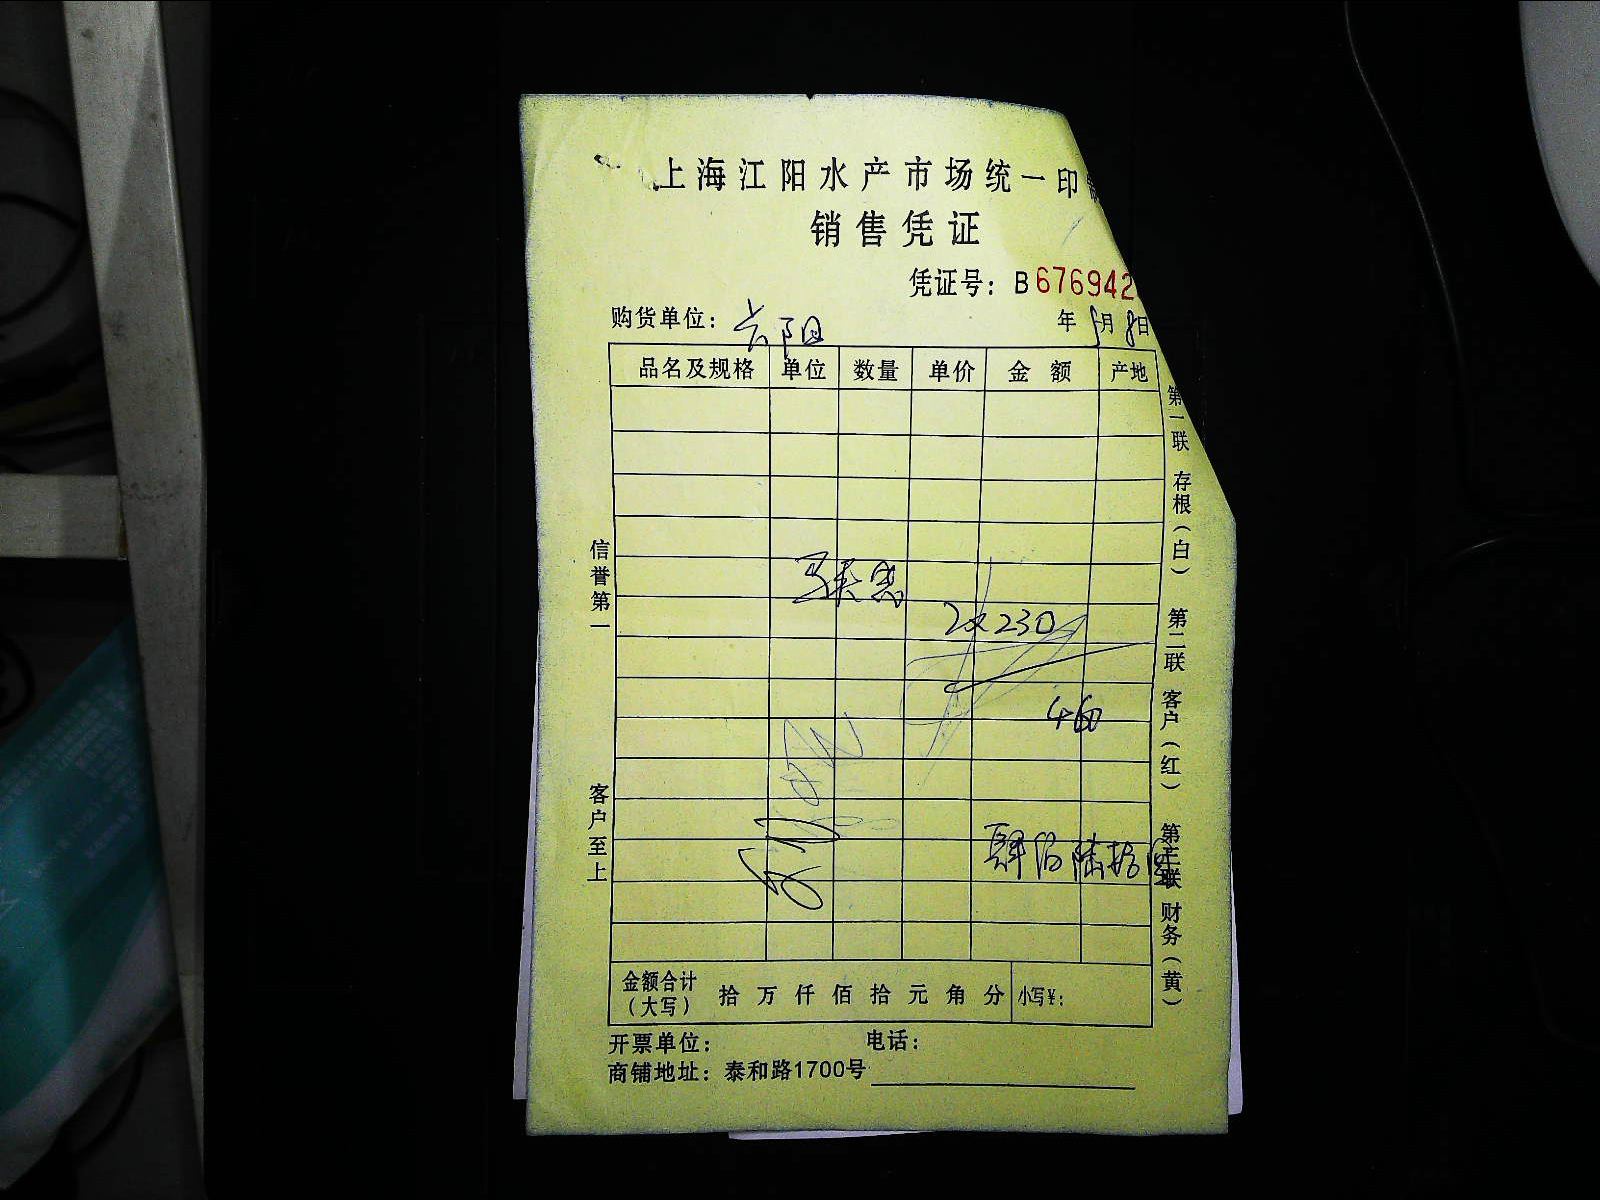 上海江阳水产市场统一印
销售凭证
凭证号：B676942
购货单位： 年 月8日
品名及规格 单位 数量 单价 金额 产地
2×230
460
肆佰陆拾
金额合计（大写） 拾 万 仟 佰 拾 元 角 分 小写¥：
开票单位： 电话：
商铺地址：泰和路1700号
信誉第一 客户至上
第一联 存根（白） 第二联 客户（红） 第三联 财务（黄）